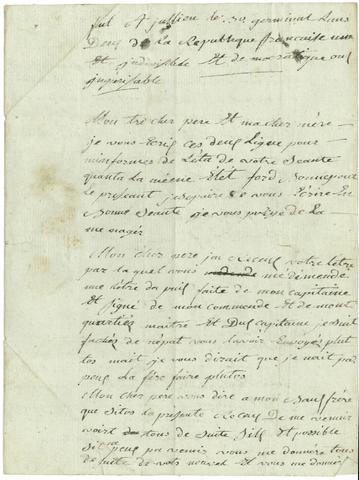 fait A jullien le 30 germinal Lans
Deux de La Republique francaise une
Et jndivisible Et de ma
jnperisable
Mon tré cher pere Et ma cher mere
je vous Ecris ces deux Ligne pour
minformer de Léta de votre Seante
quanta La miene Elet ford Bonne pour
Le presant jespaire de vous Ecrire En
Bonne Seante je vous prise de La
menager
Mon cher pere jai Recus votre Létre
par la quel vous me demende
une létre da puis faite de mon capitaine
Et signé de mon commende Et de mont
quartiés maitre Et Du capitaine je suit
fachés de népat vous Lavoir Envoyés plut
tos mait je vous dirait que je nait pas
peus La fére faire plutos
Mon cher pere vous dire a mon Bauffrére
que sitos la presente Recus De me venir
voirt tous de suite Sils Et possible
Si peus pa venire vous me donnere tous
de suite de vots nouvel Et vous me donnere